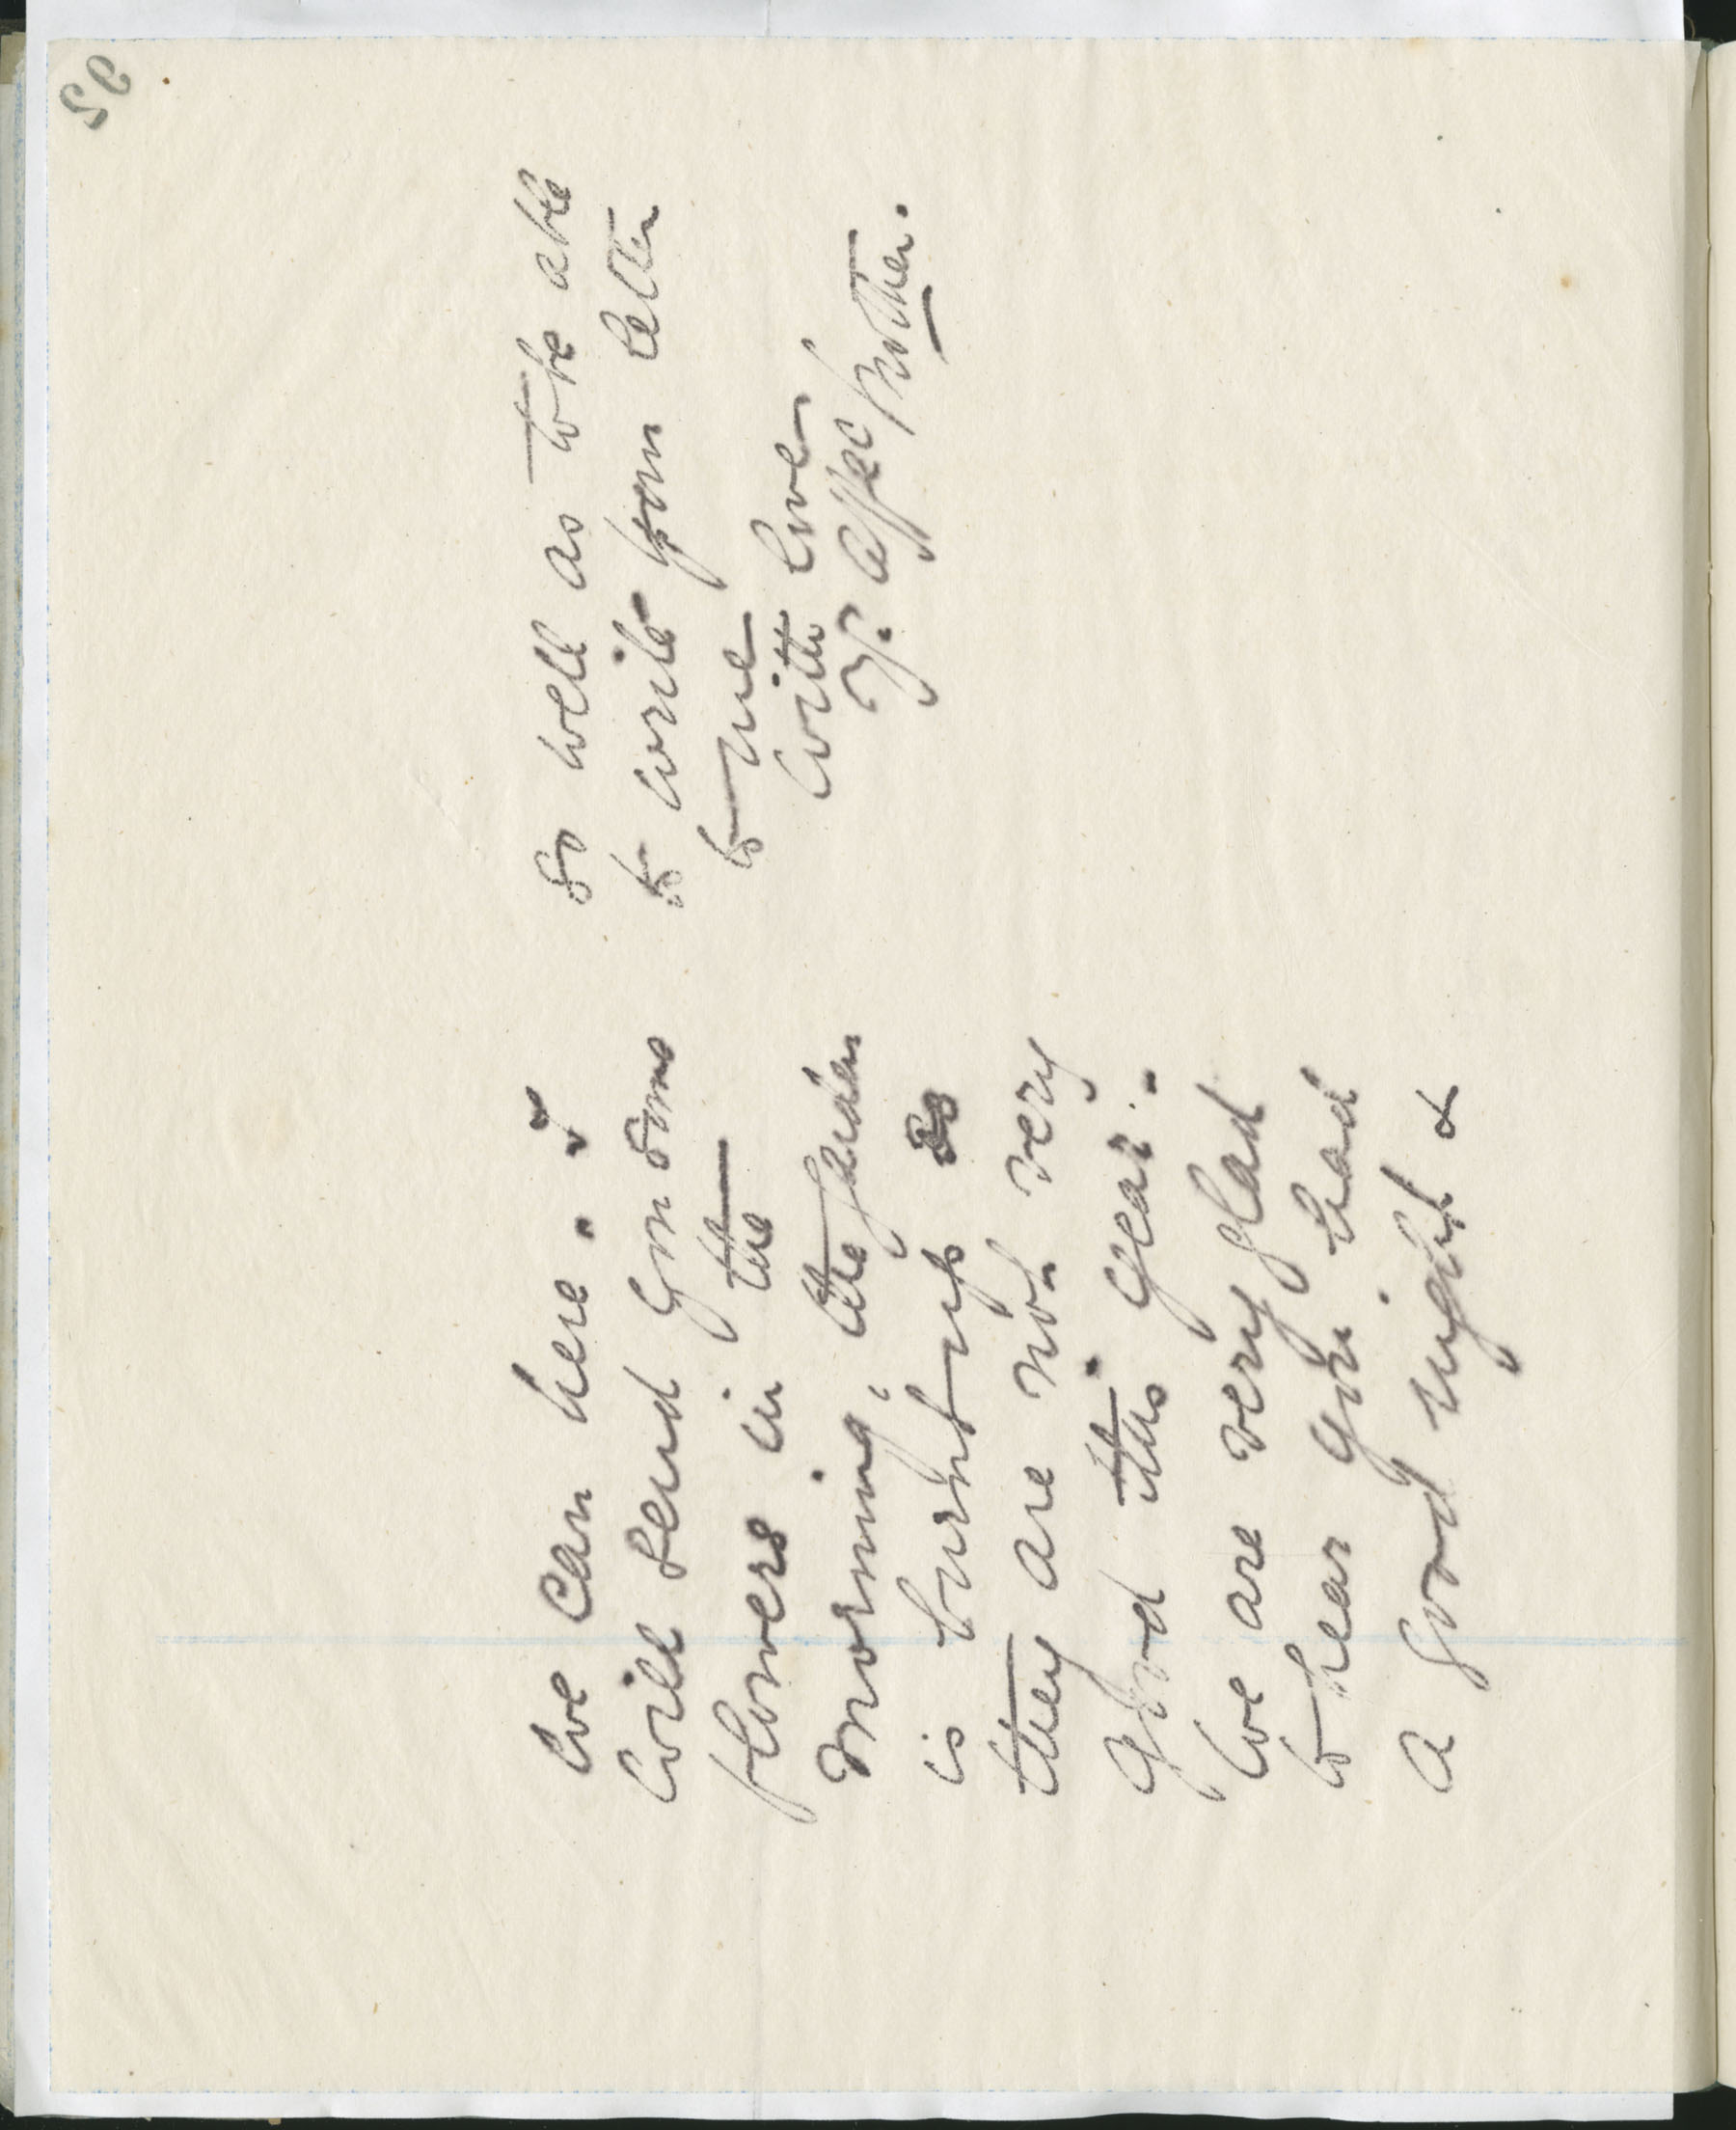 we can here. I
will send you some
flowers in the
morning, the garden
is burnt up so
they are not very
good this year.
We are very glad
to hear you had
a good night &
so well as to be able
to write your letter
to me
With love
Yr. Affec Mother.